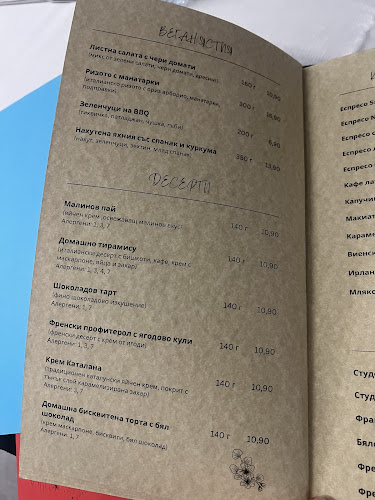 ВЕГАН ЯСТИЯ
Листна салата с чери домати 160 г 10,90
(микс от зелени салати, чери домати, дресинг)
Ризото с манатарки 300 г 16,90
(италианско ризото с ориз арборио, манатарки,
подправки)
Зеленчуци на BBQ 200 г 8,90
(тиквичка, патладжан, чушка, гъби)
Нахутена яхния със спанак и куркума 350 г 13,90
(нахут, зеленчуци, зехтин, млад спанак)
ДЕСЕРТИ
Малинов пай 140 г 10,90
(яйчен крем, освежаващ малинов вкус)
Алергени: 1, 3, 7
Домашно тирамису 140 г 10,90
(италиански десерт с бишкоти, кафе, крем с
маскарпоне, яйца и захар)
Алергени: 1, 3, 4, 7
Шоколадов тарт 140 г 10,90
(фино шоколадово изкушение)
Алергени: 1, 7
Френски профитерол с ягодово кули 140 г 10,90
(френски десерт с крем от ягоди)
Алергени: 1, 3, 7
Крем Каталана 140 г 10,90
(традиционен каталунски яйчен крем, покрит с
тънък слой карамелизирана захар)
Алергени: 3, 7
Домашна бисквитена торта с бял
шоколад 140 г 10,90
(крем маскарпоне, бисквити, бял шоколад)
Алергени: 1, 7
Еспресо
Еспресо
Еспресо
Еспресо
Еспресо
Кафе ла
Капучин
Макиат
Караме
Виенск
Ирлан
Мляко
Студе
Студ
Фра
Бяло
Фре
Фре